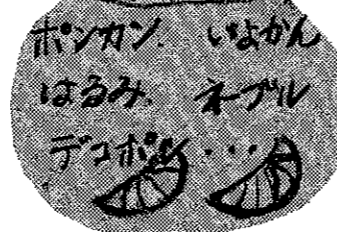 ポンカン. いよかん
はるみ. ネーブル
デコポン・・・